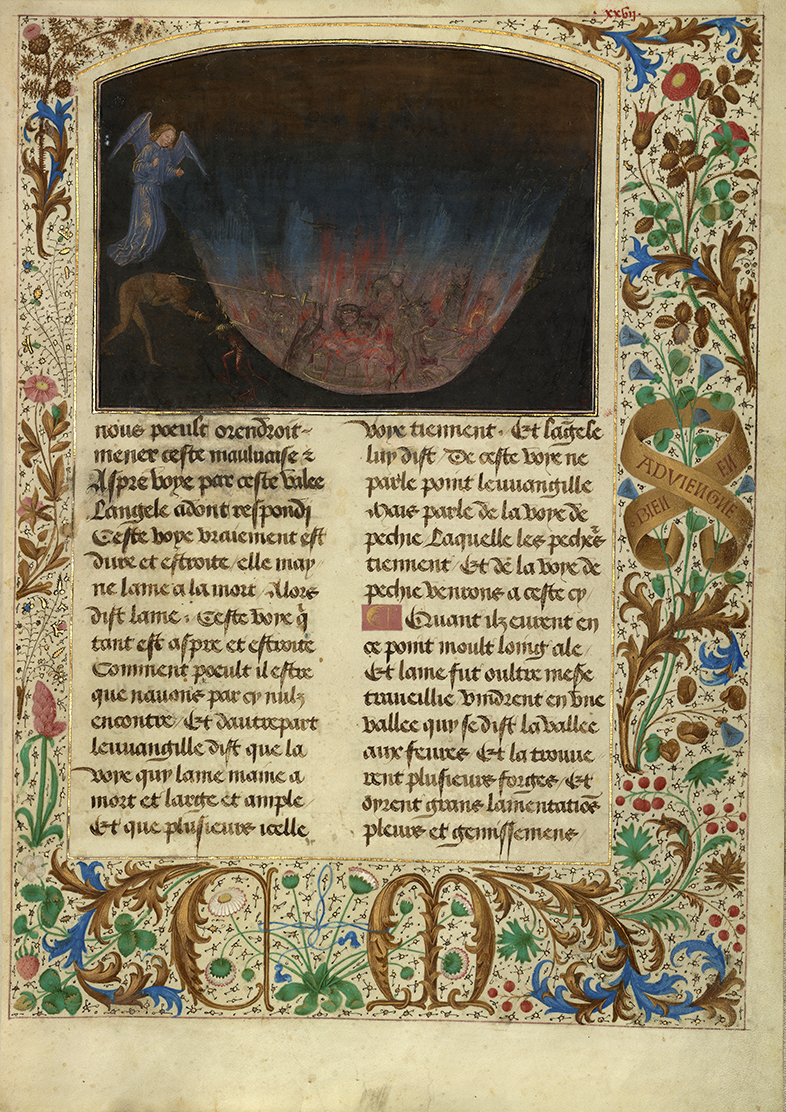 xxvii.
nous poeult orendroit
mener ceste mauluaise z
Aspre voye par ceste valee
Langele adont respondi
Ceste voye vraiement est
dure et estroite / elle may
ne lame a la mort . Alors
dist lame . Ceste voye q̄
tant est aspre et estroite
Comment poeult il estre
que nauons par cy nulz
encontre / Et dautrepart
leuuangille dist que la
voye quy lame maine a
mort et large et ample /
Et que pluseurs icelle
voye tiennent . Et lāgele
luy dist De ceste voye ne
parle point leuuangille
Mais parle de la voye de
pechie Laquelle les pechēs
tiennent / Et de la voye de
pechie venrons a ceste cy /
Quant ilz eurent en
ce point moult loing ale /
Et lame fut oultre messe
traueillie vindrent en vne
vallee quy se dist la vallee
aux feures Et la trouue
rent pluseurs forges / Et
oyrent grans lamentatiōs
pleurs et gemissemens
BIEN EN
ADVIENGNE
C M